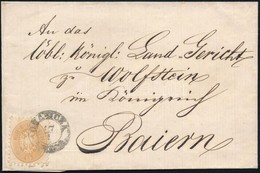 An das
löbl: Königl: Land-Gericht
zu Wolfstein
im Königreich
Baiern
17